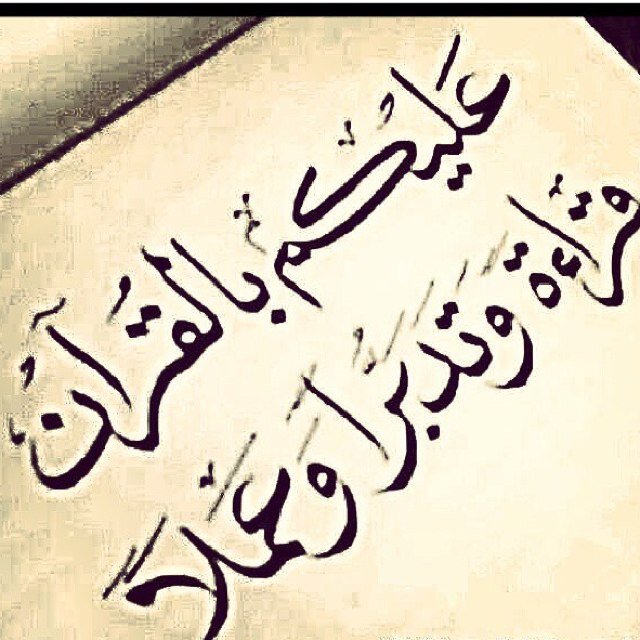 عليكم بالقرآن
قراءة وتدبرا وعملا